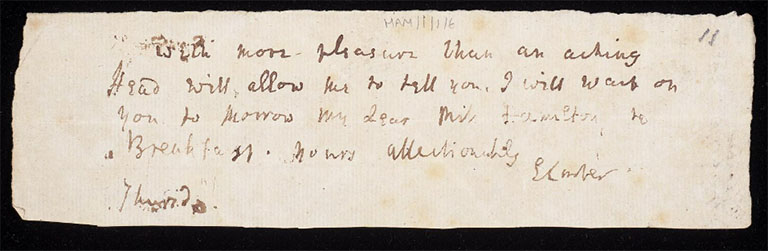 HAM/1/1/6
11
With more pleasure than an aching
Head will, allow me to tell you. I will wait on
you to morrow my Dear Miss Hamilton, to
Breakfast. yours affectionately
ECarter
Thursd.